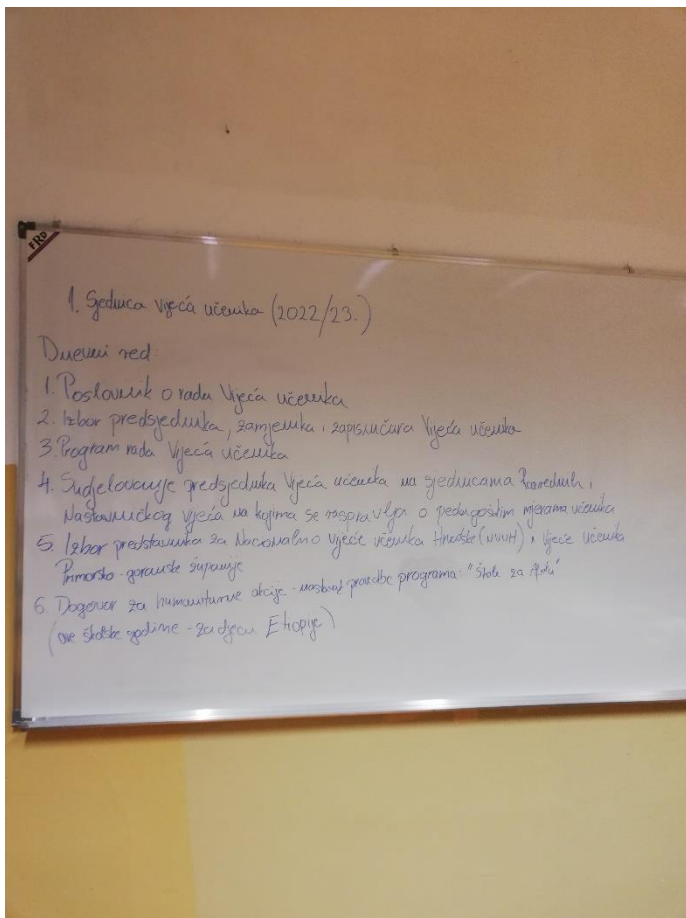 FRD
1. Sjednica Vijeća učenika (2022/23.)
Dnevni red:
1. Poslovnik o radu Vijeća učenika
2. Izbor predsjednika, zamjenika i zapisničara Vijeća učenika
3. Program rada Vijeća učenika
4. Sudjelovanje predsjednika Vijeća učenika na sjednicama Razrednih i
Nastavničkog vijeća na kojima se raspravlja o pedagoškim mjerama učenika
5. Izbor predstavnika za Nacionalno vijeće učenika Hrvatske (NVUH) i Vijeće učenika
Primorsko-goranske županije
6. Dogovor za humanitarne akcije - nastavak provedbe programa: "Škole za Afriku"
(ove školske godine - za djecu Etiopije)